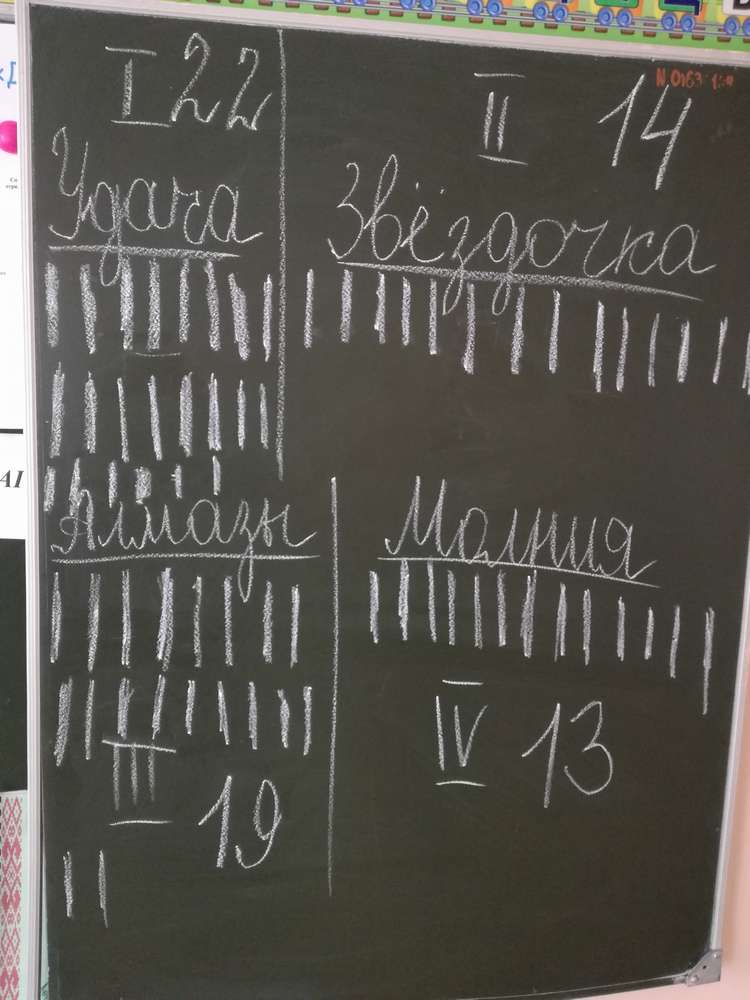 I 22
Удача
II 14
Звёздочка
Алмазы
III 19
Молния
IV 13
АІ